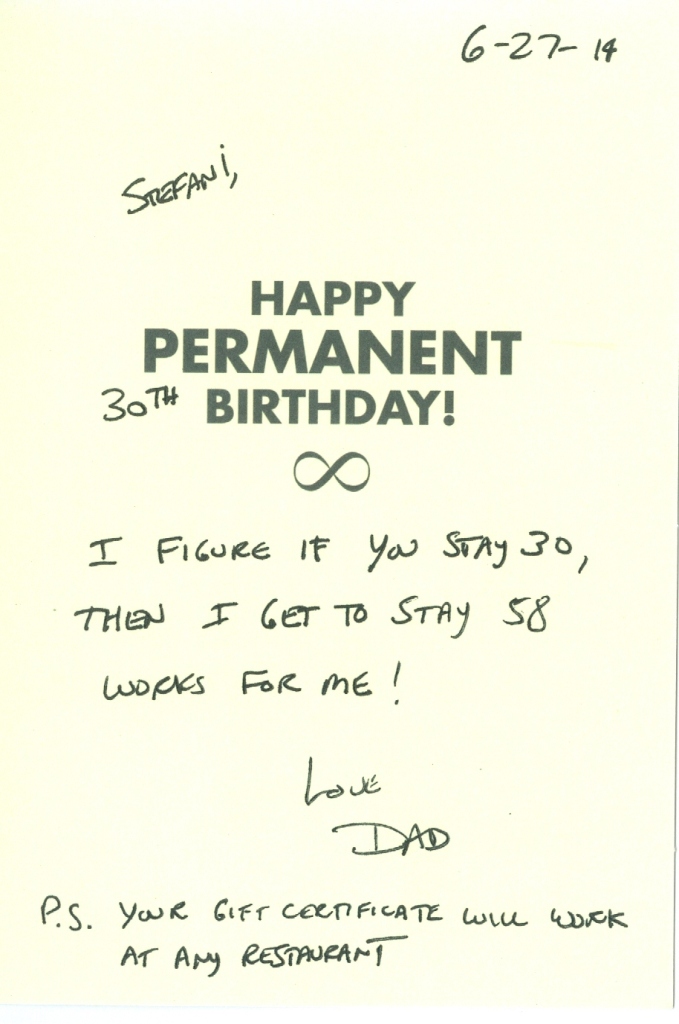 6-27-14
STEFANi,
HAPPY
PERMANENT
30TH BIRTHDAY!
∞
I FIGURE IF YOU STAY 30,
THEN I GET TO STAY 58
WORKS FOR ME!
LOVE
DAD
P.S. YOUR GIFT CERTIFICATE WILL WORK
AT ANY RESTAURANT